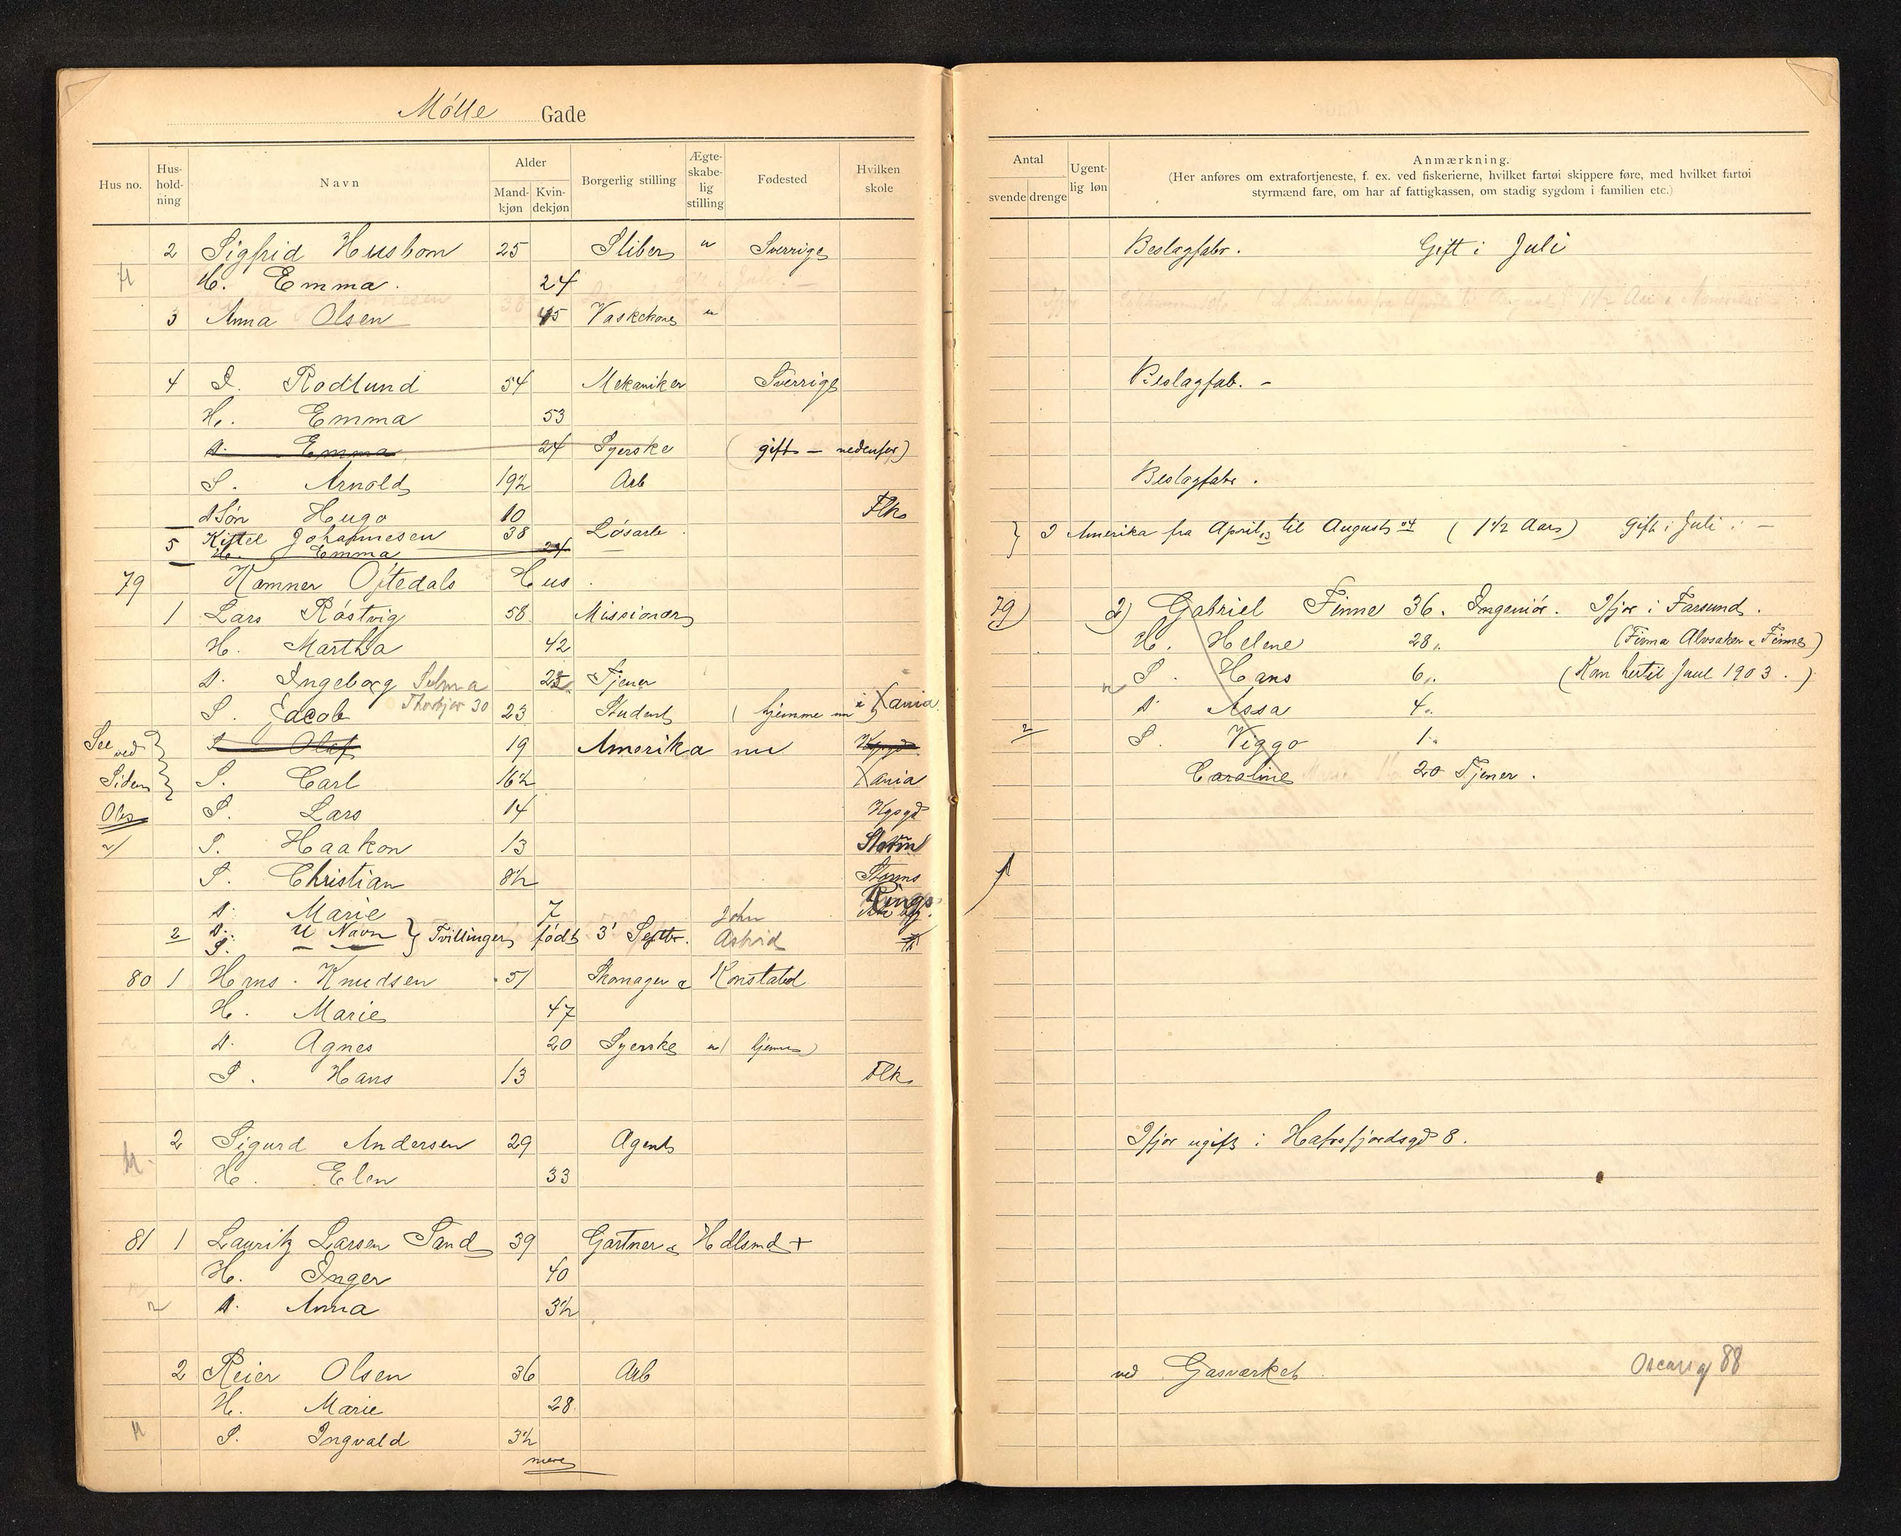 Mölle Gade
Hus no. Hus-hold-ning Navn Alder Mand-kjøn Kvin-dekjøn Borgerlig stilling Ægte-skabe-lig stilling Fødested Hvilken skole
2 Sigfrid Husbom 25 Sliber u Sverrige
H. Emma. 24
3 Anna Olsen 45 Vaskekone u
4 I. Rodlund 54 Mekaniker Sverrige
H. Emma 53
D. Emma 24 Syerske (gift - nedenfor)
S. Arnold 19½ Arb
D Søn Hugo 10 Flk
5 Kittel Johannesen 38 Løsarb.
H. Emma 24
79 Kæmner Oftedals Hus.
1 Lars Röstvig 58 Missionær
H. Martha 42
D. Ingeborg Selma 25 Tjener
S. Jacob 23 Student (hjemme nu i Xania)
Thorbjør 30
See ved S Olaf 19 Amerika nu
Siden S. Carl 16½ Xania
Olss S. Lars 14 Kgsgd
S. Haakon 13 Storm
S. Christian 8½ Storms
D. Marie 7 Kings
2 D. U Navn } Tvillinger født 3' Septbr. John
S. Astrid
80 1 Hans Knudsen 51 Skomager & Konstabel
H. Marie 47
D. Agnes 20 Syerske u (hjemme)
S. Hans 13 Flk
2 Sigurd Andersen 29 Agent
M. H. Elen 33
81 1 Lauritz Larsen Sand 39 Gartner & Hdlsmd +
H. Inger 40
D. Anna 3½
2 Reier Olsen 36 Arb
H. Marie 28
M S. Ingvald 3½
mere
Antal svende drenge Ugent-lig løn Anmærkning.
(Her anføres om extrafortjeneste, f. ex. ved fiskerierne, hvilket fartøi skippere føre, med hvilket fartøi
styrmænd fare, om har af fattigkassen, om stadig sygdom i familien etc.)
Beslagfabr. Gift i Juli
Beslagfab. -
Beslagfabr.
} I Amerika fra April 03 til August 04 (1½ Aar) Gift i Juli. -
79) 2) Gabriel Finne 36. Ingeniör. Ifjor i Farsund.
H. Helene 28. (Firma Alvsaker & Finne)
S. Hans 6. (Kom hertil Juul 1903.)
D. Assa 4.
2 S. Viggo 1.
Caroline 20 Tjener.
Ifjor ugift i Hafrsfjordsgd 8.
ved Gasværket Oscarsg 88